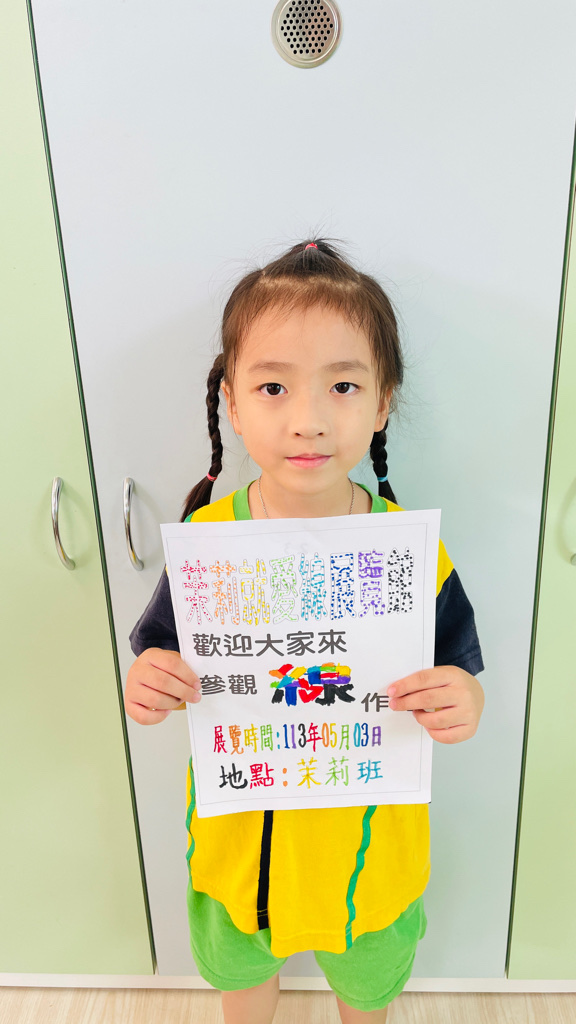 茉莉就愛線展覽館
歡迎大家來
參觀 線 作
展覽時間:113年05月03日
地點:茉莉班